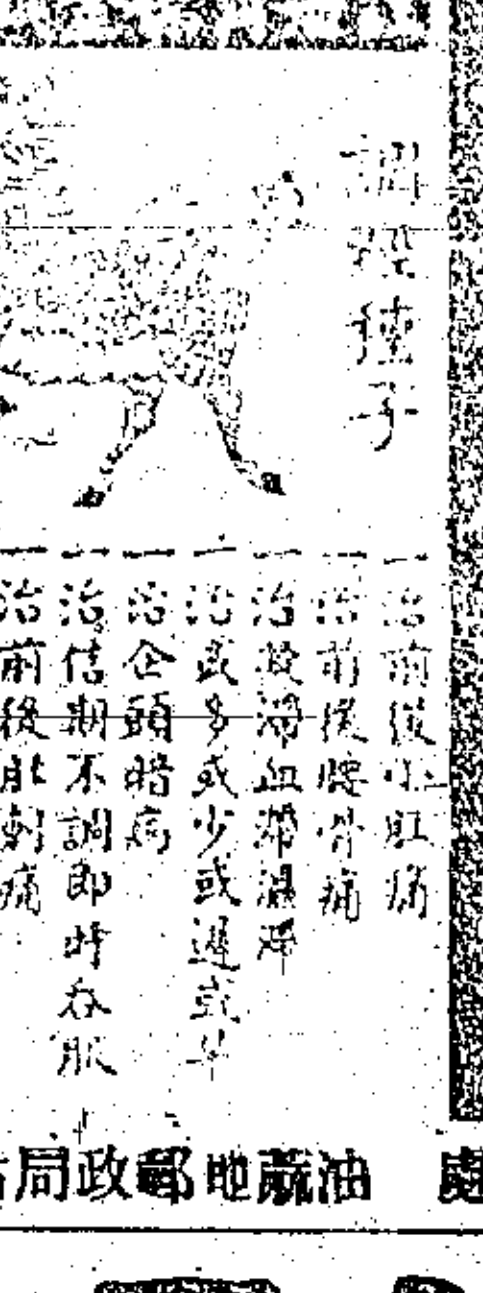 調經種子
一治前後小肚痛
一治前後腰骨痛
一治放滯血滯濕滯
一治或多或少或遲或早
一治企頭暗病
一治信期不調即時吞服
一治前後肚刺痛
處 油蔴地郵政局